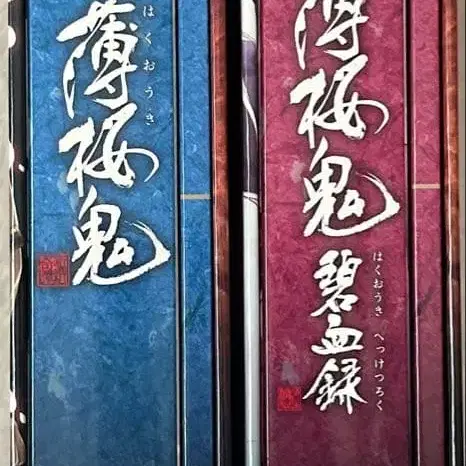 薄桜鬼
はくおうき
薄桜鬼
碧血録
はくおうき へっけつろく